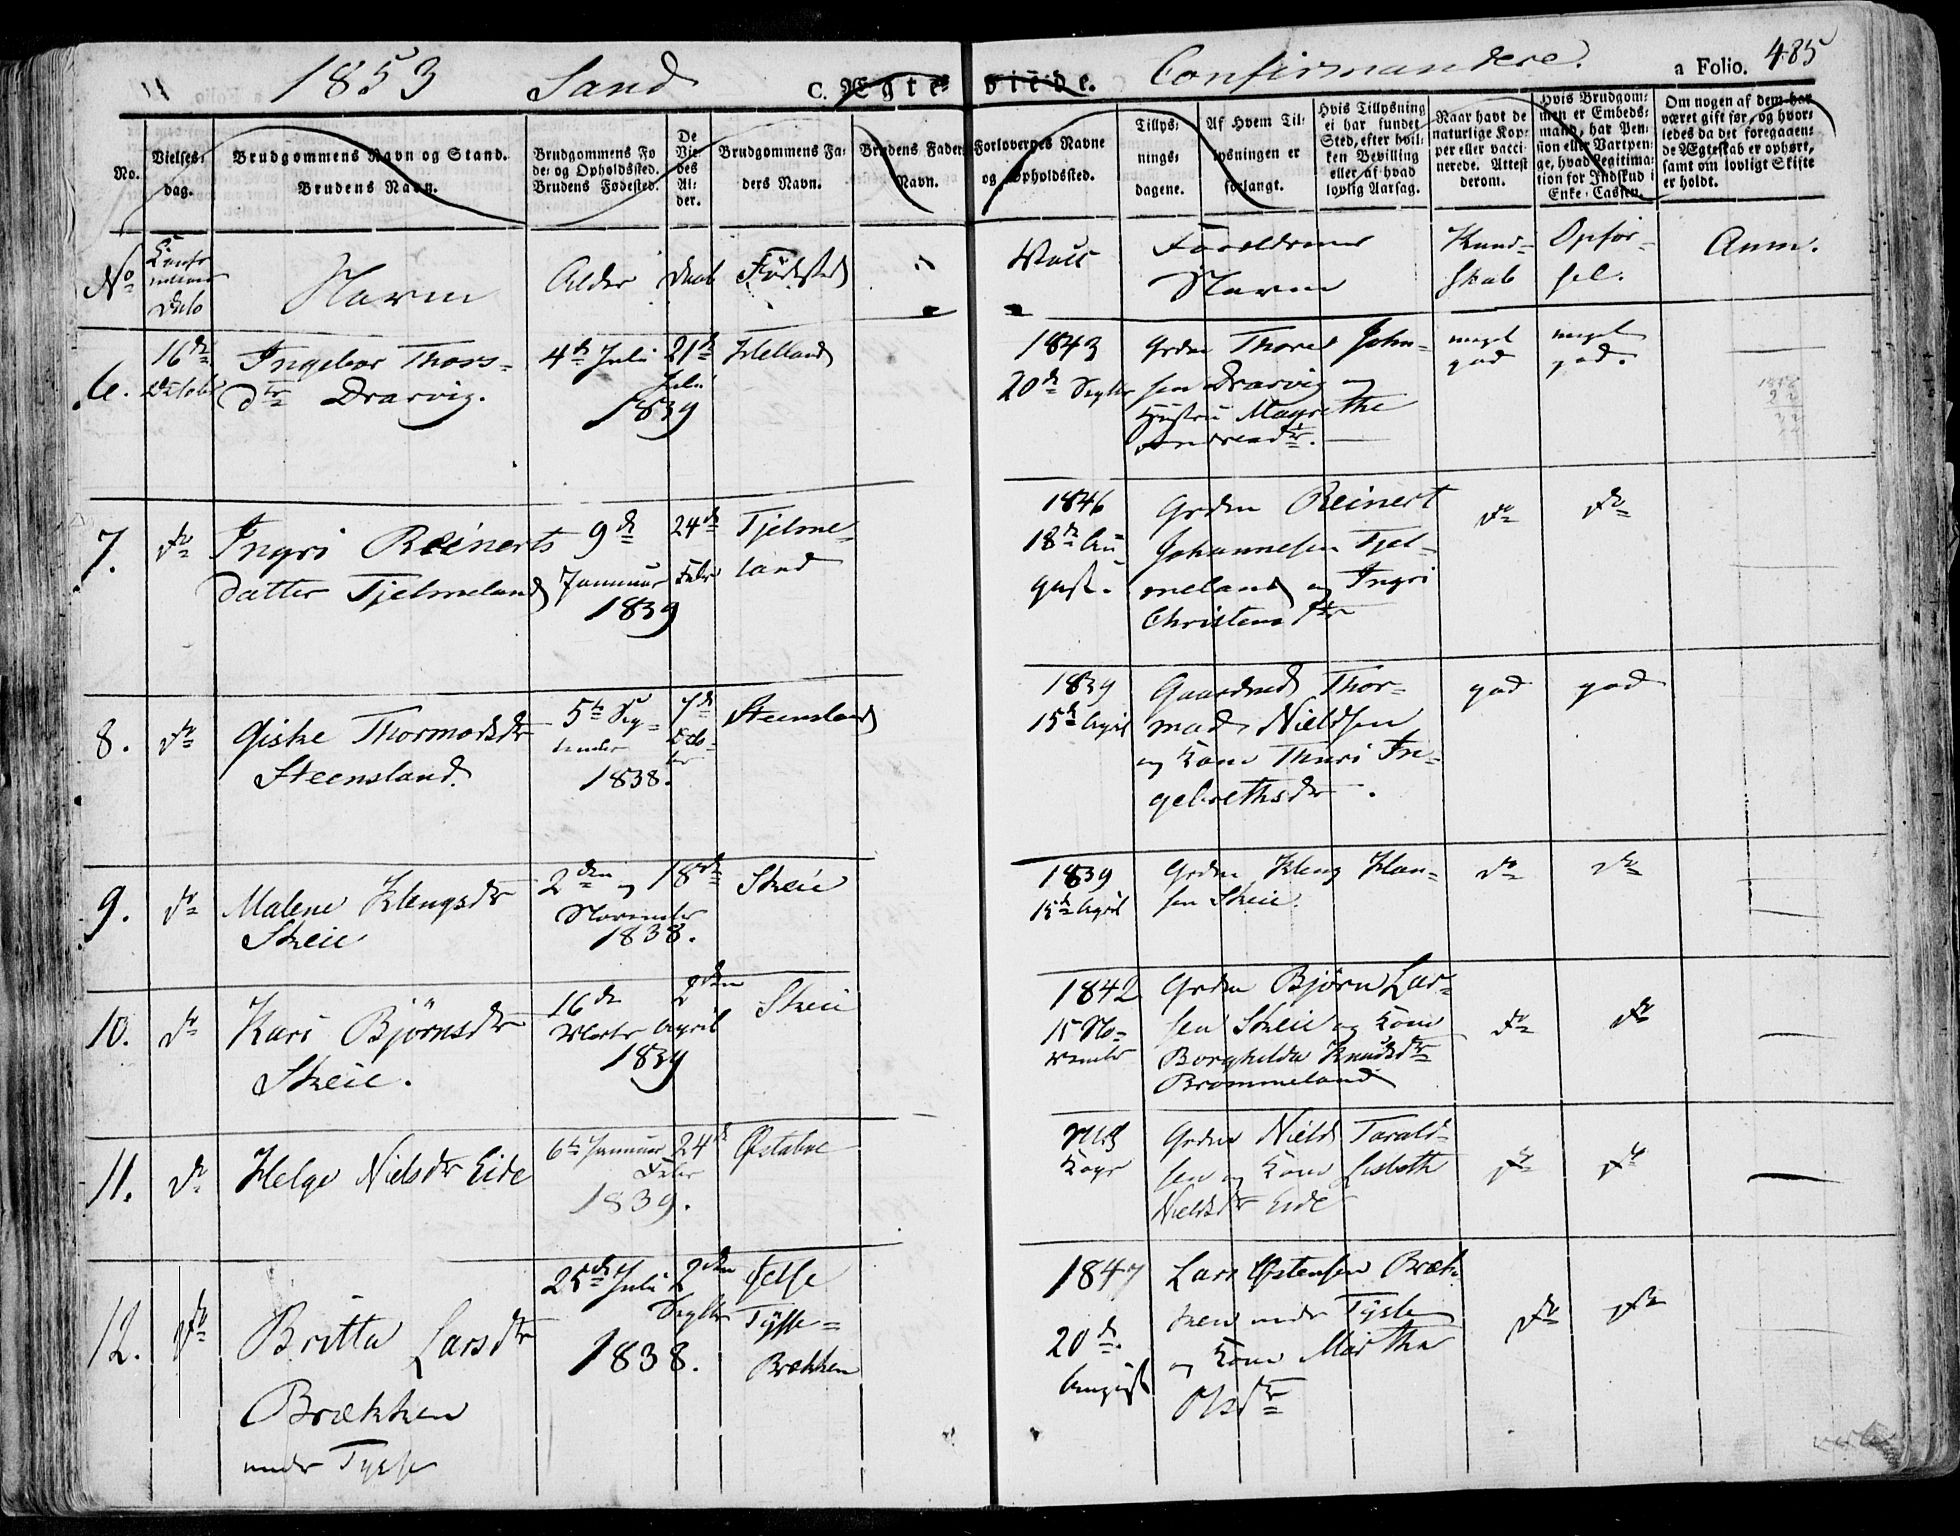 1853 Sand C. Ægte- viede. Confirmandere. a Folio. 485
No.
Vielses-
dag.
Brudgommens Navn og Stand.
Brudens Navn.
Brudgommens Fø
de- og Opholdssted.
Brudens Fødested.
De
Vie-
des
Al-
der.
Brudgommens Fa-
ders Navn.
Brudens Faders
Navn.
Forlovernes Navne
og Opholdssted.
Tillys-
nings-
dagene.
Af Hvem Til-
lysningen er
forlangt.
Hvis Tillysning
ei har fundet
Sted, efter hvil-
ken Bevilling
eller af hvad
lovlig Aarsag.
Naar havt de
naturlige Kop-
per eller vacci-
nerede. Attest
derom.
Hvis Brudgom-
men er Embeds-
mand, har Pen-
sion eller Vartpen-
ge, hvad Legitima-
tion for Indskud i
Enke-Cassen.
Om nogen af dem har
været gift før, og hvor-
ledes da det foregaaen-
de Ægteskab er ophørt,
samt om lovligt Skifte
er holdt.
No
Navn
Alder
Daab
Fødested
Vacc
Forældrenes
Navne
Kund-
skab
Opfør-
sel.
Anm.
6.
16de
October
Ingebor Thors-
dtr Drarvig.
4de Juli
21de
Juli
1839
Helland
1843
20de Septbr
Grdm Thore John-
sen Drarvig og
Hustru Magrethe
Andreadtr.
meget
god
meget
god.
7.
do
Ingri Reinerts
datter Tjelmeland
9de
Januar
24de
Febr
1839
Tjelme-
land
1846
18de Au-
gust.
Grdm Reinert
Johannesen Tjel-
meland og Ingri
Christensdtr
do
do
8.
do
Giske Thormodsdr
Steensland.
5te Sep-
tember
7de
Octo-
ber
1838.
Steensland
1839
15de April
Gaardmd Thor-
mod Nieldsen
og Kone Thuri In-
gebrethsdr.
god
god
9.
do
Malene Klengsdr
Skeie
2den og 18de
November
1838.
Skeie
1839
15de April
Grdm Kleng Klau-
sen Skeie.
do
do
10.
do
Kari Bjørnsdr
Skeie.
16de
Marts
2den
April
1839
Skeie
1842
15 No-
vember
Grdm Bjørn Lar-
sen Skeie og Kone
Borghilda Knudsdr
Brommeland
do
do
11.
do
Helge Nielsdr Eide
6te Januar
24de
Febr
1839.
Østabøe
Kopr
Grdm Nield Tarald-
sen og Kone Lisbeth
Nieldsdr Eide
do
do
12.
do
Britta Larsdr
Brækken
under Tysse
25de Juli
2den
Septbr
1838.
Jelse
Tysse-
Brækken
1847
20de
August
Lars Østensen Bræk-
ken under Tysse
og Kone Martha
Olsdtr
do
do